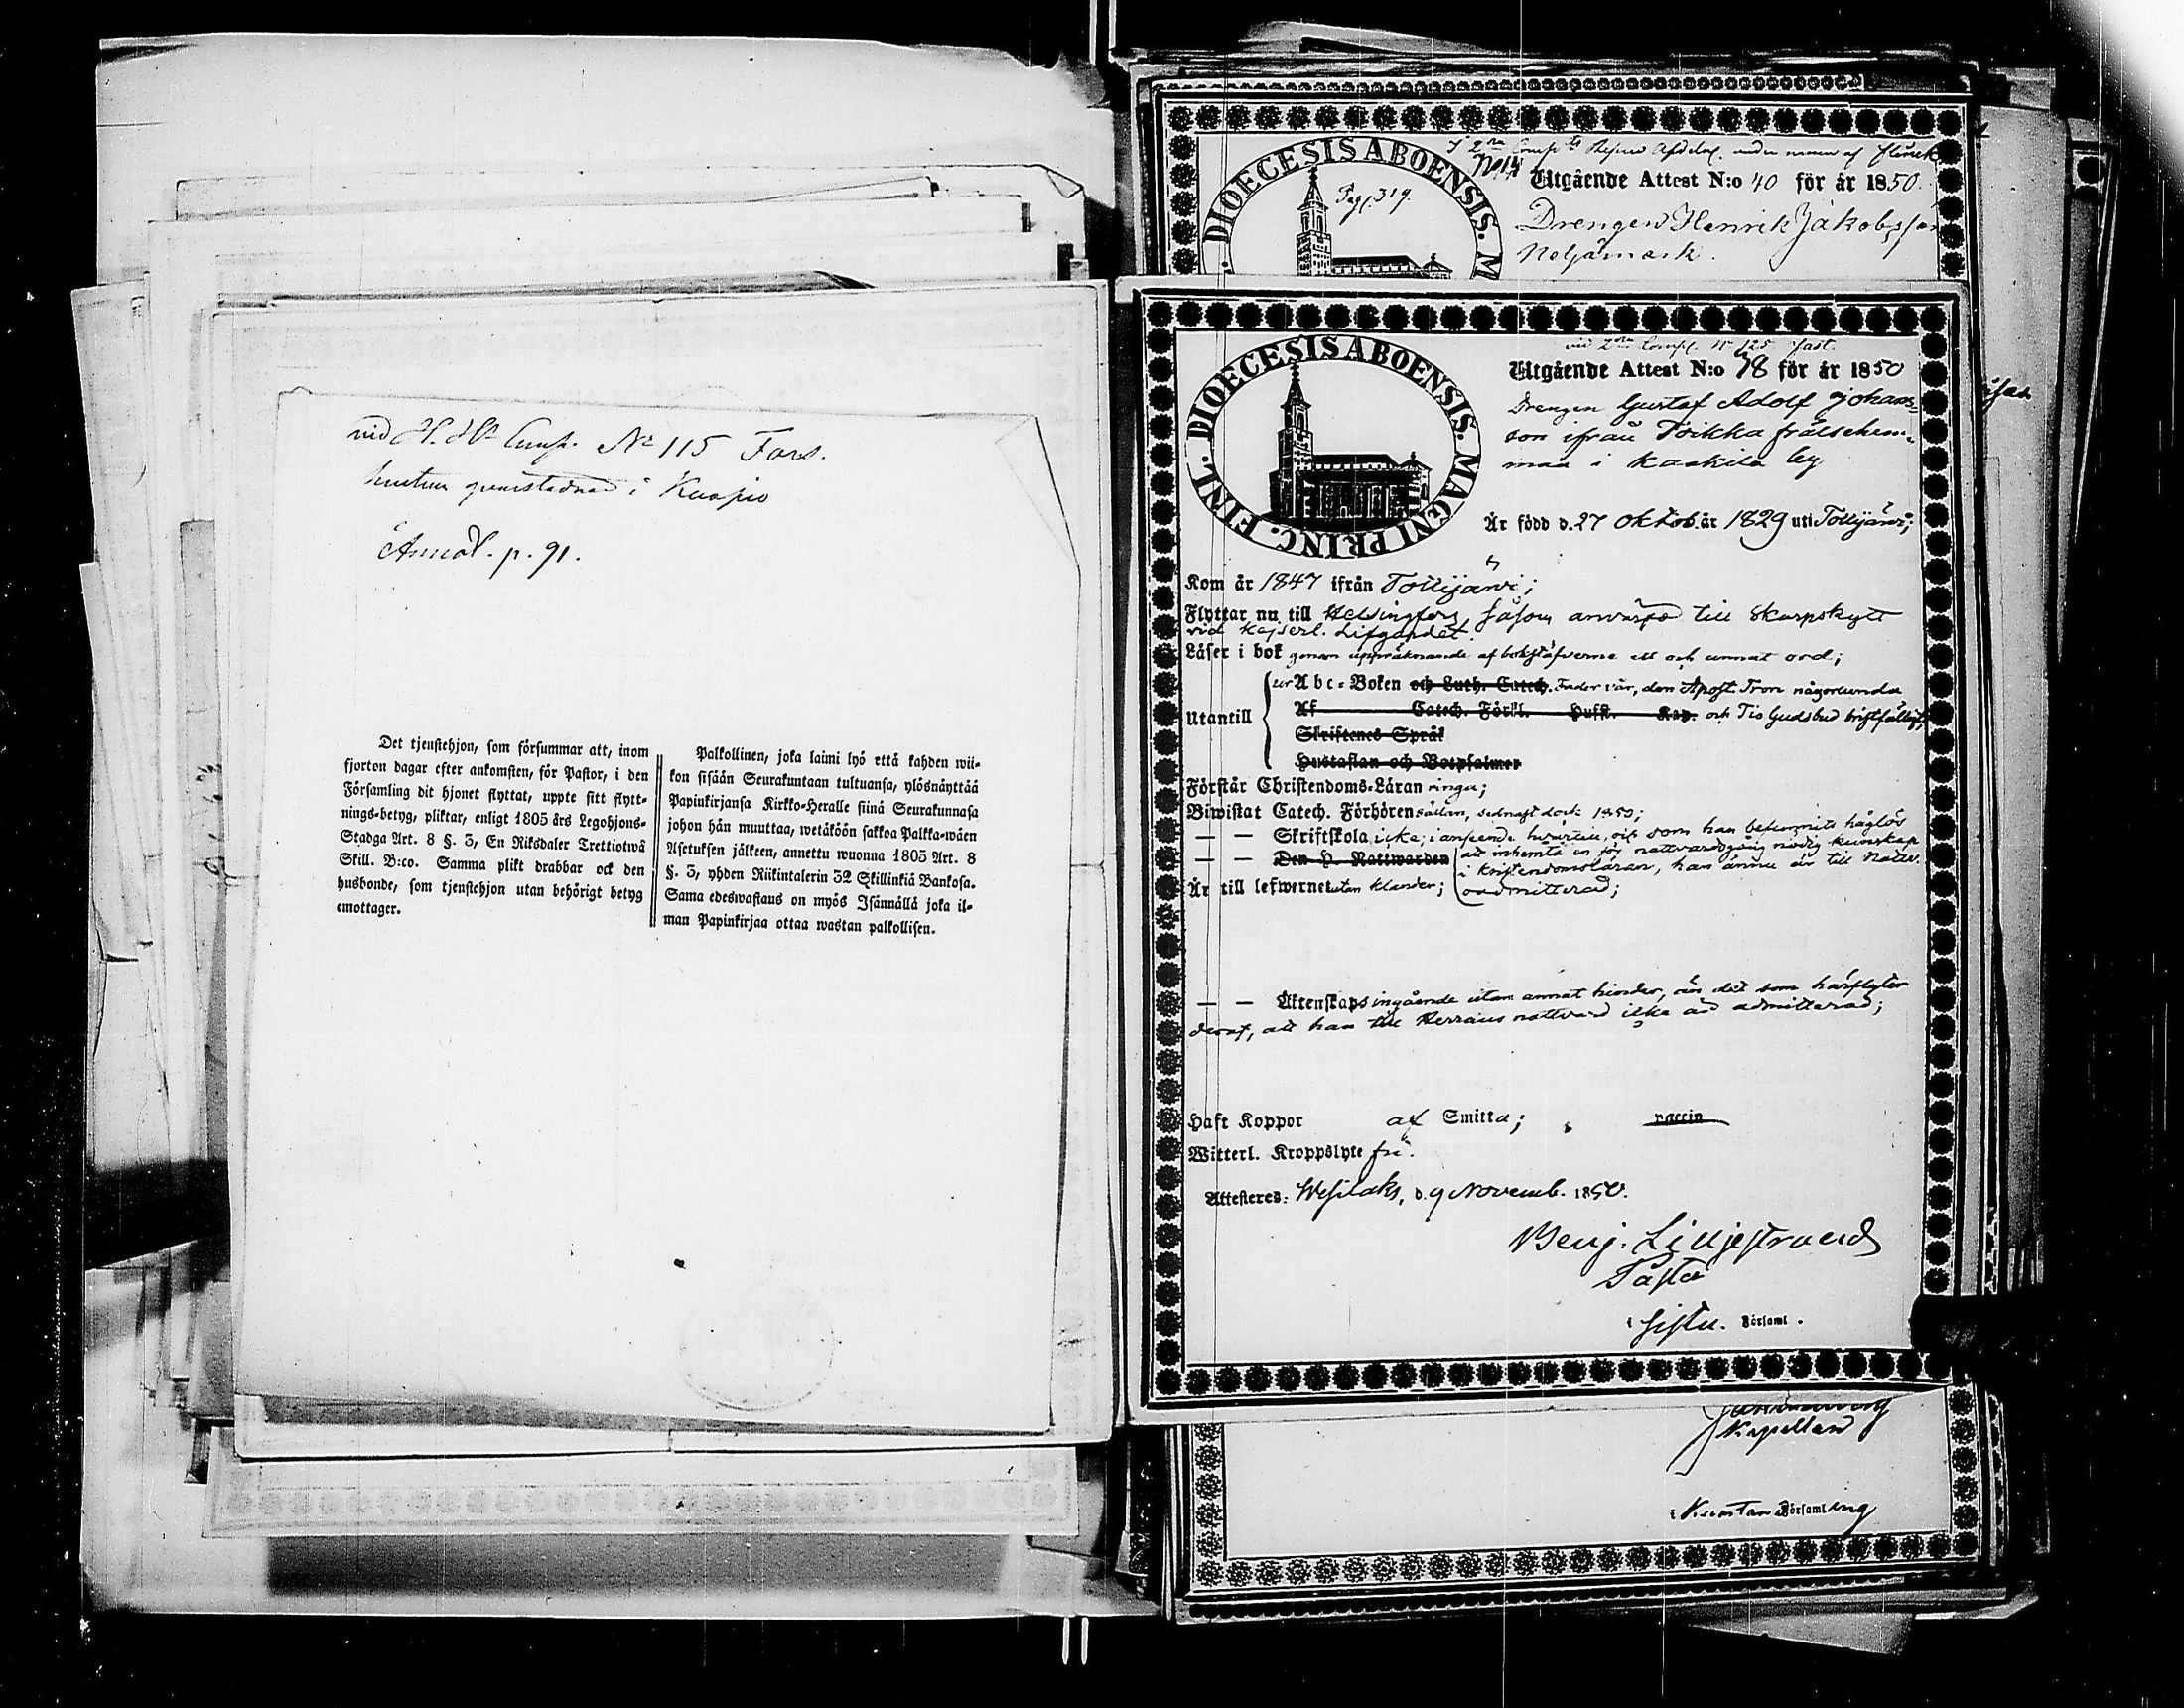 vid H. Hs Comp. No 115 Fors.
i Kuopio
Anmäl. p. 91.
Det tjenstehjon, som försummar att, inom
fjorton dagar efter ankomsten, för Pastor, i den
Församling dit hjonet flyttat, uppte sitt flytt-
nings-betyg, pliktar, enligt 1805 års Legohjons-
Stadga Art. 8 §. 3, En Riksdaler Trettiotwå
Skill. B:co. Samma plikt drabbar ock den
husbonde, som tjenstehjon utan behörigt betyg
emottager.
Palkollinen, joka laimi lyö että kahden wii-
kon sisään Seurakuntaan tultuansa, ylösnäyttää
Papinkirjansa Kirkko-Heralle siinä Seurakunnasa
johon hän muuttaa, wetäköön sakkoa Palkka-wäen
Asetuksen jälkeen, annettu wuonna 1805 Art. 8
§. 3, yhden Riikintalerin 32 Skillinkiä Bankosa.
Sama edeswastaus on myös Isännällä joka il-
man Papinkirjaa ottaa wastan palkollisen.
DIOECESIS ABOENSIS. M
Pag. 319.
Utgående Attest N:o 40 för år 1850.
Drengen Henrik Jakobsson
Neljämark.
DIOECESIS ABOENSIS. MAGNI PRINC. FINL.
vid 2dra Comp. No 125 fast.
Utgående Attest N:o 78 för år 1850
Drengen Gustaf Adolf Johans-
son ifrån Toikka frälsehem-
man i Kaakila by
Är född d. 27 Oktob. år 1829 uti Tottijärvi;
Kom år 1847 ifrån Tottijärvi;
Flyttar nu till Helsingfors, såsom anvärfvad till Skarpskytt
vid Kejserl. Lifgardet.
Läser i bok genom uppräknande af bokstäfverne ett och annat ord;
Utantill
ur Abc-Boken och Luth. Catech. Fader vår, den Apost. Tron någorlunda
Af Catech. Förkl. Hufst. Kap. och Tio Guds bud bristfälligt;
Skriftenes Språk
Hustaflan och Botpsalmer
Förstår Christendoms-Läran ringa;
Biwistat Catech. Förhören sällan, sednast dock 1850;
— — Skriftskola icke; i anseende hvartill, och som han befunnits håglös
— — Den h. Nattwarden att inhemta en för nattvardsgång nödig kunskap
i kristendomsläran, han ännu är till Nattv.
Är till lefwernet utan klander; oadmitterad;
— — Äktenskaps ingående utan annat hinder, än det som härflyter
deraf, att han till Herrans nattvard icke är admitterad;
Haft Koppor af Smitta; vaccin
Witterl. Kroppslyte fri.
Attesteres: Wesilaks, d. 9 Novemb. 1850.
Benj. Liljestrand
Pastor
i sistn. Församl.
Kapellan
Församling